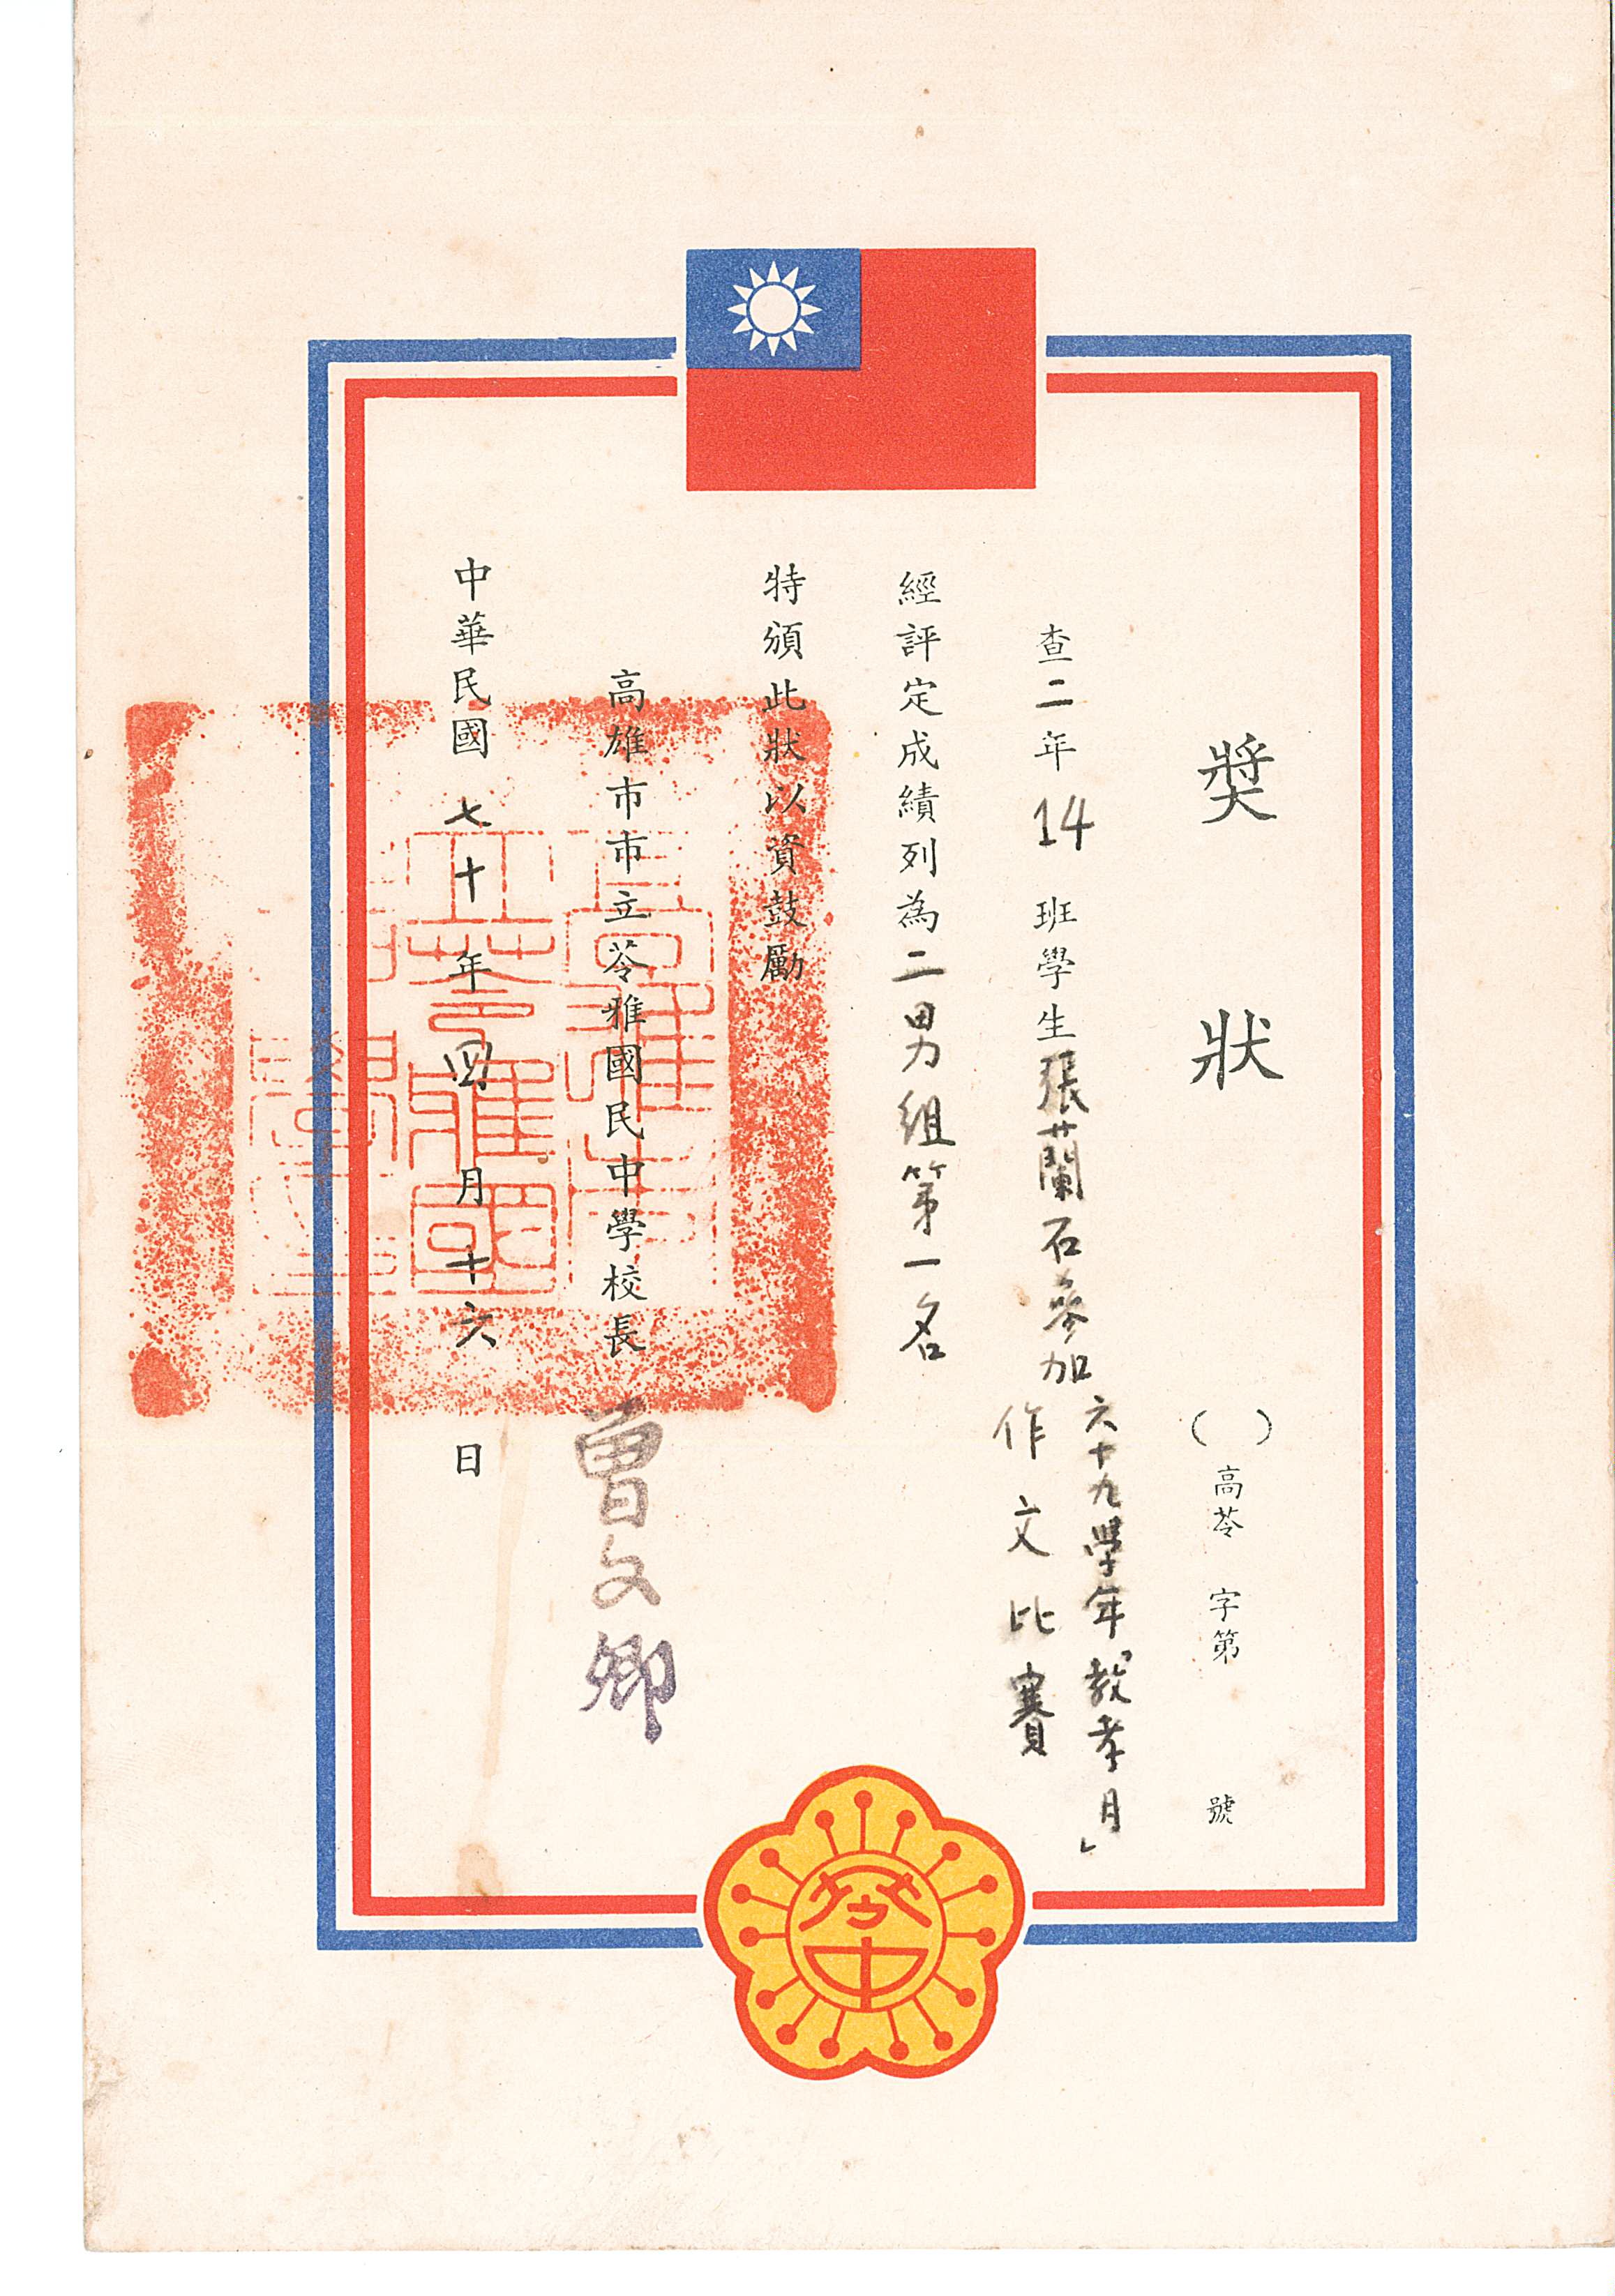 奬狀
( )高苓 字第 號
查二年14班學生張蘭石參加六十九學年「教孝月」
作文比賽
經評定成績列為二男組第一名
特頒此狀以資鼓勵
高雄市市立苓雅國民中學校長曾文卿
中華民國七十年四月十六日